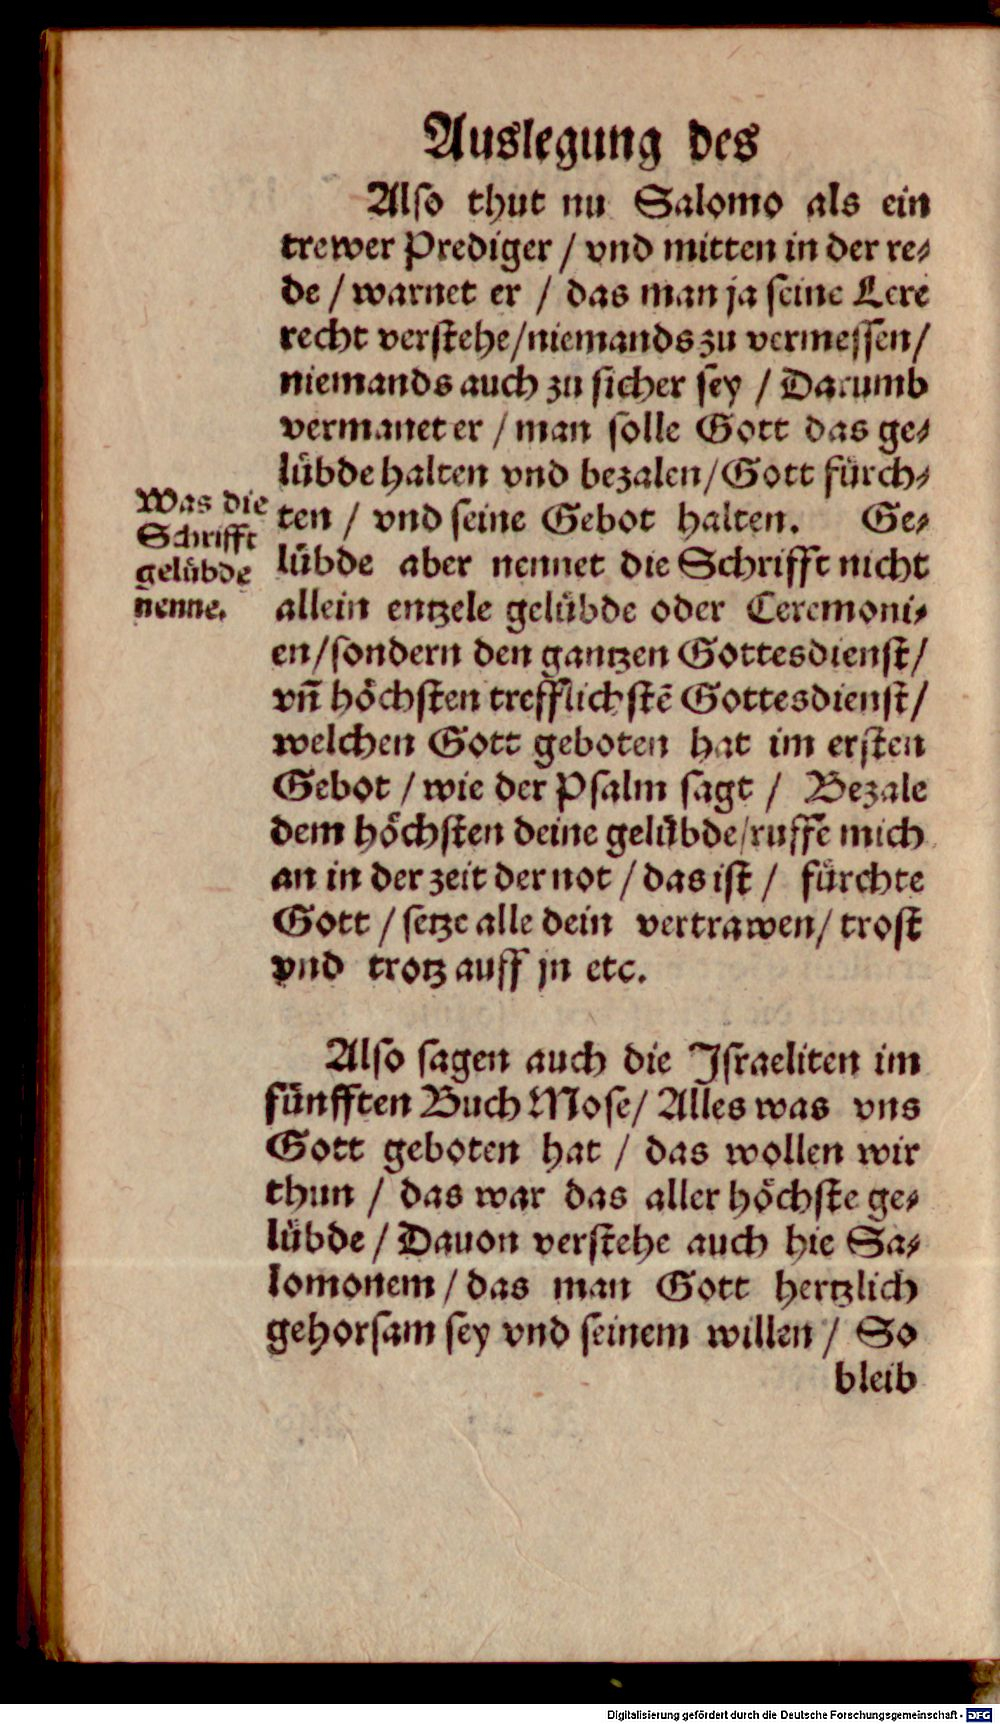 Auslegung des
Also thut nu Salomo als ein
trewer Prediger / vnd mitten in der re⸗
de / warnet er / das man ja seine Lere
recht verstehe/niemands zu vermessen/
niemands auch zu sicher sey / Darumb
vermanet er / man solle Gott das ge⸗
lübde halten vnd bezalen/Gott fürch⸗
ten / vnd seine Gebot halten. Ge⸗
lübde aber nennet die Schrifft nicht
allein entzele gelübde oder Ceremoni⸗
en/sondern den gantzen Gottesdienst/
vn̄ höchsten trefflichstē Gottesdienst/
welchen Gott geboten hat im ersten
Gebot / wie der Psalm sagt / Bezale
dem höchsten deine gelübde/ruffe mich
an in der zeit der not / das ist / fürchte
Gott / setze alle dein vertrawen/ trost
vnd trotz auff jn etc.
Was die
Schrifft
gelübde
nenne.
Also sagen auch die Israeliten im
fünfften Buch Mose/ Alles was vns
Gott geboten hat / das wollen wir
thun / das war das aller höchste ge⸗
lübde / Dauon verstehe auch hie Sa⸗
lomonem / das man Gott hertzlich
gehorsam sey vnd seinem willen / So
bleib
Digitalisierung gefördert durch die Deutsche Forschungsgemeinschaft - DFG